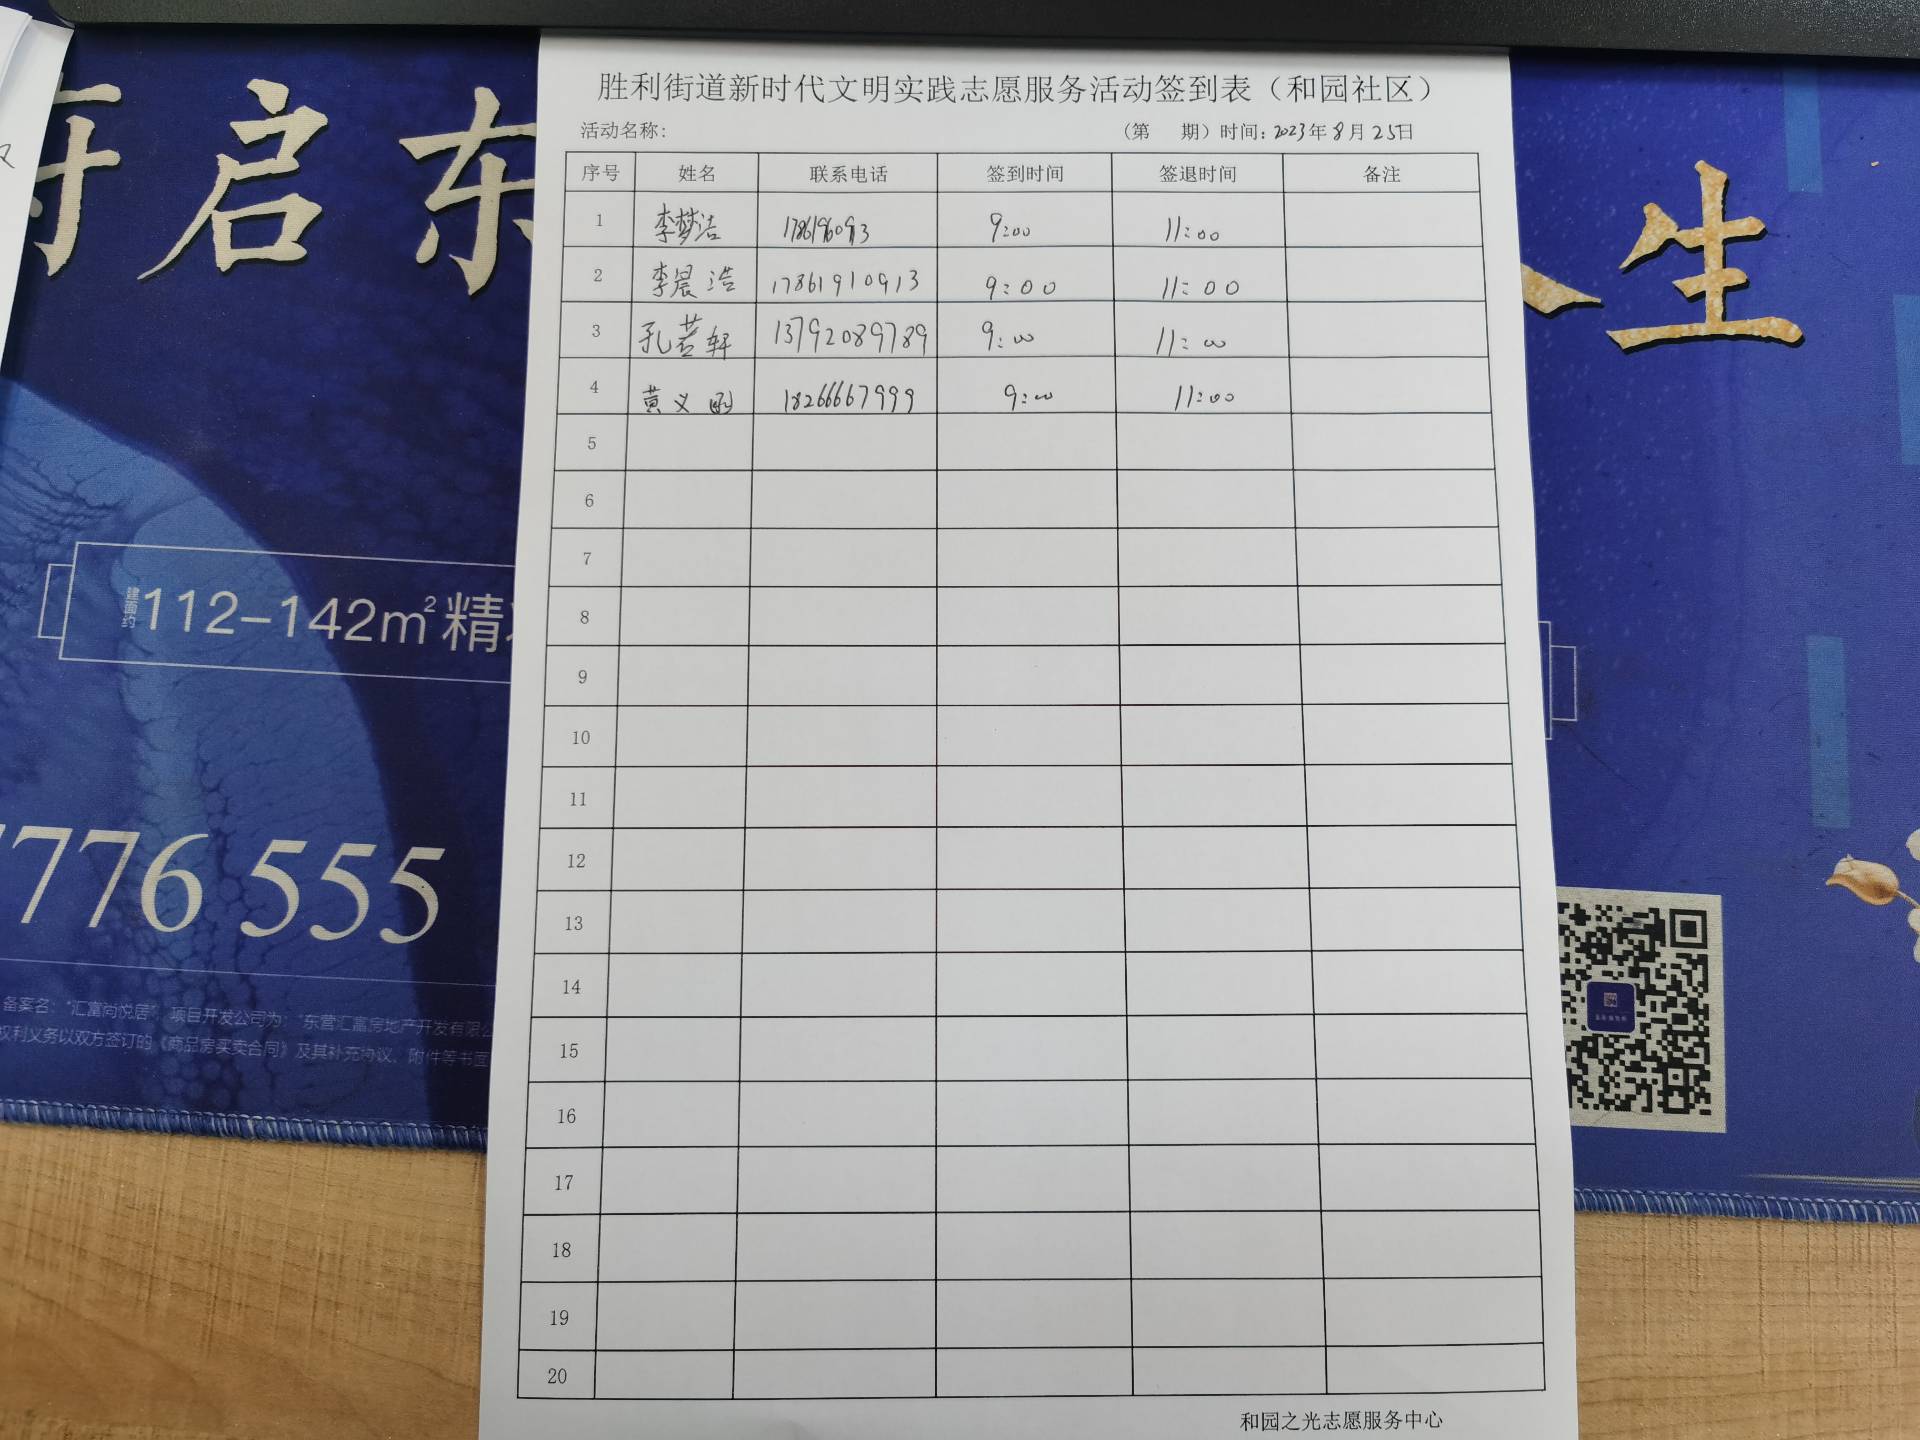 胜利街道新时代文明实践志愿服务活动签到表（和园社区）
活动名称: （第 期）时间: 2023年8月25日
序号 姓名 联系电话 签到时间 签退时间 备注
1 李梦洁 9:00 11:00
2 李晨浩 17861910913 9:00 11:00
3 孔若轩 13792089789 9:00 11:00
4 黄义 18266667999 9:00 11:00
5
6
7
8
9
10
11
12
13
14
15
16
17
18
19
20
和园之光志愿服务中心
启东
生
建面约112-142m²精
776 555
备案名："汇富尚悦居"，项目开发公司为："东营汇富房地产开发有限公
权利义务以双方签订的《商品房买卖合同》及其补充协议、附件等书面